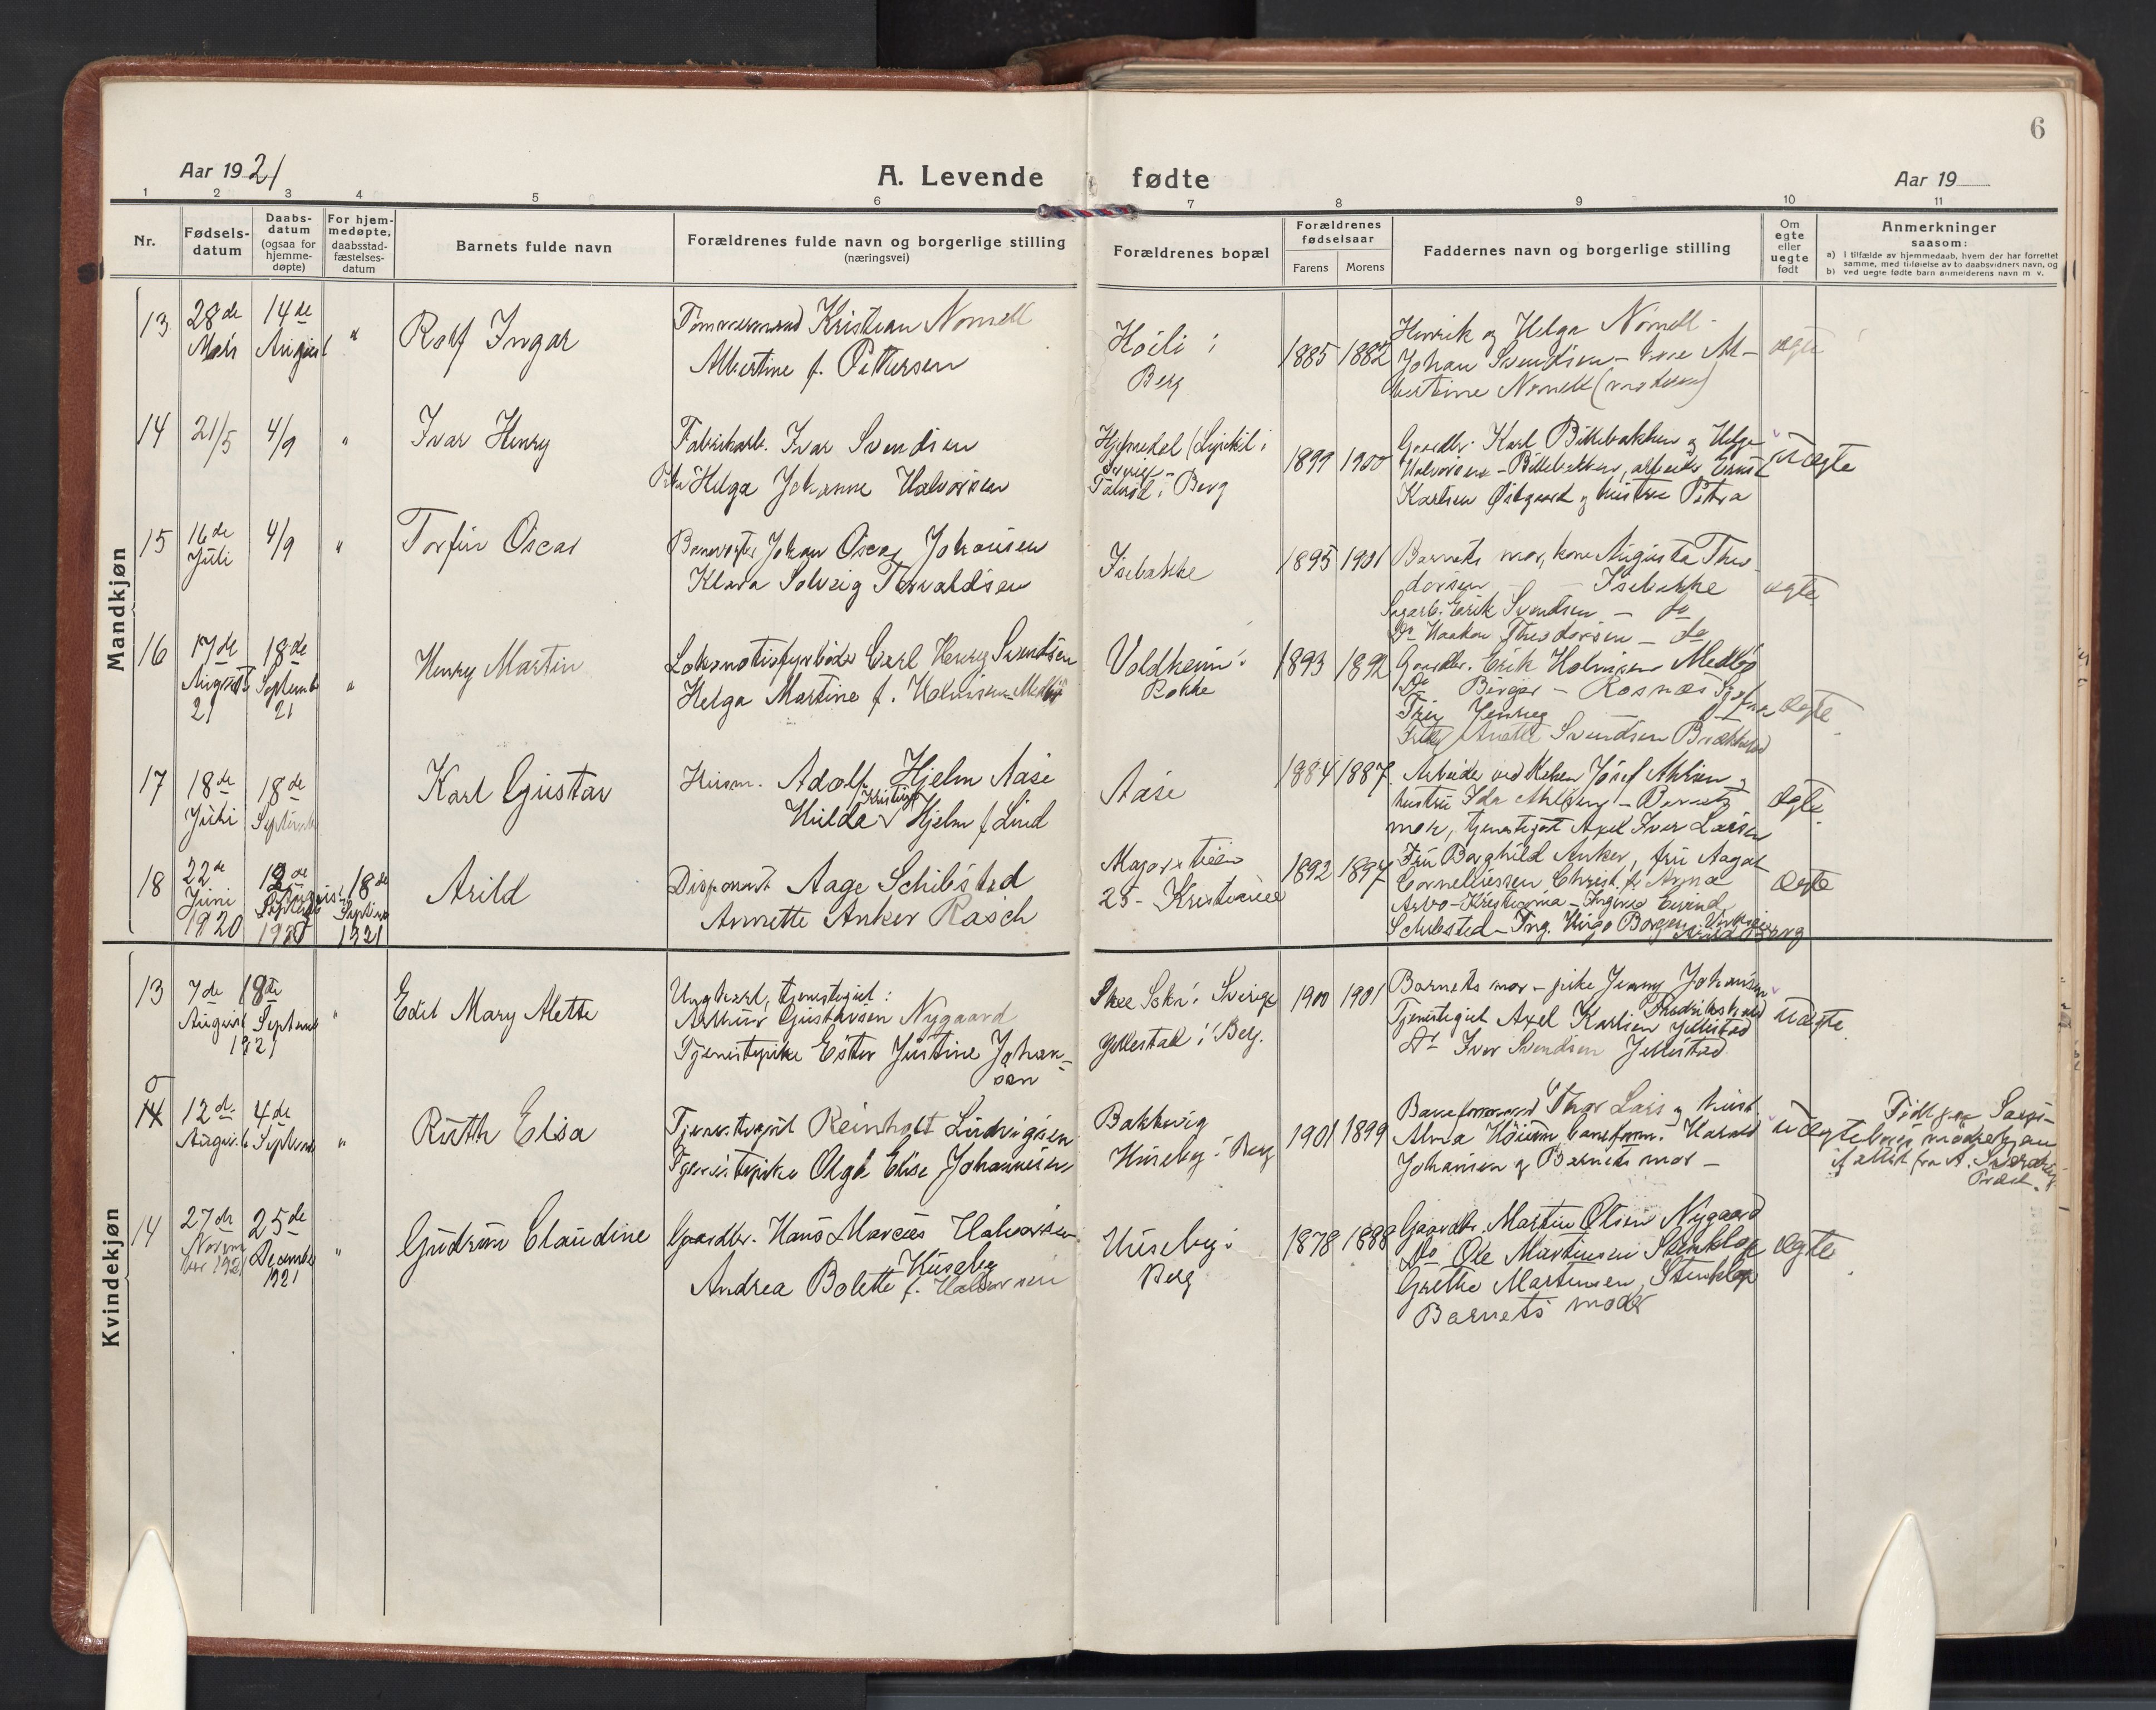 6
Aar 1921
A. Levende fødte
Aar 19
1 2 3 4 5 6 7 8 9 10 11
Nr.
Fødsels-
datum
Daabs-
datum
(ogsaa for
hjemme-
døpte)
For hjem-
medøpte,
daabsstad-
fæstelses-
datum
Barnets fulde navn
Forældrenes fulde navn og borgerlige stilling
(næringsvei)
Forældrenes bopæl
Forældrenes
fødselsaar
Farens Morens
Faddernes navn og borgerlige stilling
Om
egte
eller
uegte
født
Anmerkninger
saasom:
a) i tilfælde av hjemmedaab, hvem der har forrettet
samme, med tilføielse av to daabsvidners navn, og
b) ved uegte fødte barn anmelderens navn m. v.
Mandkjøn
13
28de
Mars
14de
August
"
Rolf Ingar
Kristian Nomell
Albertine f. Pettersen
Høili i
Berg
1885 1882
Henrik og Helga Nomell
Johan Svendsen - kone Al-
bertine Nomell (moderen)
ægte
14
21/5
4/9
"
Ivar Henry
Fabrikarb. Ivar Svendsen
Helga Johanne Halvorsen
i Berg
1899 1900
Gaardbr. Karl Billebakken og Helga
Halvorsen - Billebakken, arbeider Ernst
Karlsen Østgaard og hustru Petra
Uægte
15
16de
Juli
4/9
"
Torfin Oscar
Banevogter Johan Oscar Johansen
Klara Solveig Torvaldsen
Isebakke
1895 1901
Barnets mor, kone Augusta Theo-
dorsen - Isebakke
Erik Svendsen - do
Do Haakon Theodorsen - do
ægte
16
17de
August
21
18de
Septemb
21
"
Henry Martin
Lokomotivfyrbøder Carl Henry Svendsen
Helga Martine f. Holmsen Medbø
Voldheim i
Rokke
1893 1892
Gaardbr. Erik Holmsen Medbø
Do Birger - Rosnæs
Anette Svendsen
ægte
17
18de
Juli
18de
Septemb
Karl Gustav
Husm. Adolf Hjelm Aase
Kristine
Hilda Hjelm f Lind
Aase
1884 1887
Arbeider ved Josef Ahlsen og
hustru Ida - Barnets
mor, tjenestegut Axel Iver Larsen
Ægte
18
22de
Juni
1920
18de
Septemb
1921
Arild
Disponent Aage Schibsted
Annette Anker Rasch
25 - Kristiania
1892 1897
Fru Borghild Anker, fru Aagot
Corneliussen Christ. fr Anna
Arbo - Kristiania - Ingeniør Eivind
Schibsted - Ing. Hugo Borgen
Ægte
Kvindekjøn
13
7de
August
1921
18de
Septemb
"
Edit Mary Alette
Ungkarl, tjenestegut:
Arthur Gustavsen Nygaard
Tjenestepike Ester Justine Johan-
sen
Skee Sokn i Sverige
Gjellestad i Berg.
1900 1901
Barnets mor - pike Jenny Johansen
Fredrikshald
Tjenestegut Axel Karlsen Jellestad
Do Iver Svendsen Jellestad
Uægte
14
12de
August
4de
Septemb
"
Ruth Elsa
Tjenestegut Reinholt Ludvigsen
Tjenestepike Olga Elise Johannesen
Bakkevig
Huseby i Berg
1901 1899
Baneformand Thor Lars og hust.
Alma Høium baneform. Harald
Johansen og Barnets mor -
Uægte
Født paa Sarps-
borg mødrehjem
14
27de
Novem
ber 1921
25de
December
1921
"
Gudrun Claudine
Gaardbr. Hans Marcus Halvorsen
Huseby
Andrea Bolette f. Halvorsen
Huseby i
Berg
1878 1888
Gaardbr. Martin Olsen Nygaard
Do Ole Martinsen Stenklop
Grethe Martinsen, Stenklop
Barnets moder
Ægte